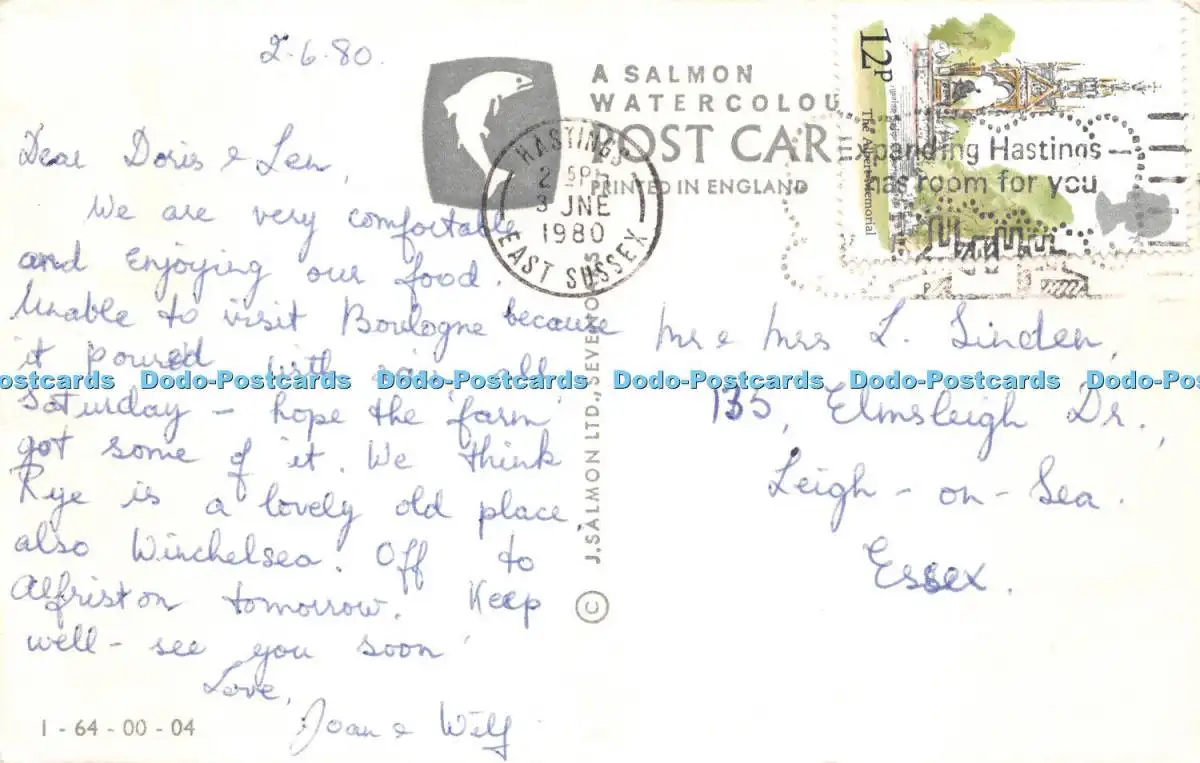 2.6.80.
A SALMON
WATERCOLOU
POST CAR
PRINTED IN ENGLAND
12P
The Albert Memorial
panding Hastings —
has room for you
HASTINGS
3 JNE
1980
EAST SUSSEX
Dear Doris & Len,
We are very comfortable
and enjoying our food.
Unable to visit Boulogne because
it poured with rain all
Saturday - hope the 'farm'
got some of it. We think
Rye is a lovely old place,
also Winchelsea. Off to
Alfriston tomorrow. Keep
well - see you soon
Love,
Joan & Wilf
1-64-00-04
© J. SALMON LTD., SEVENOAKS
Mr & Mrs L. Linden,
135, Elmsleigh Dr.,
Leigh-on-Sea.
Essex.
Dodo-Postcards Dodo-Postcards Dodo-Postcards Dodo-Postcards Dodo-Postcards